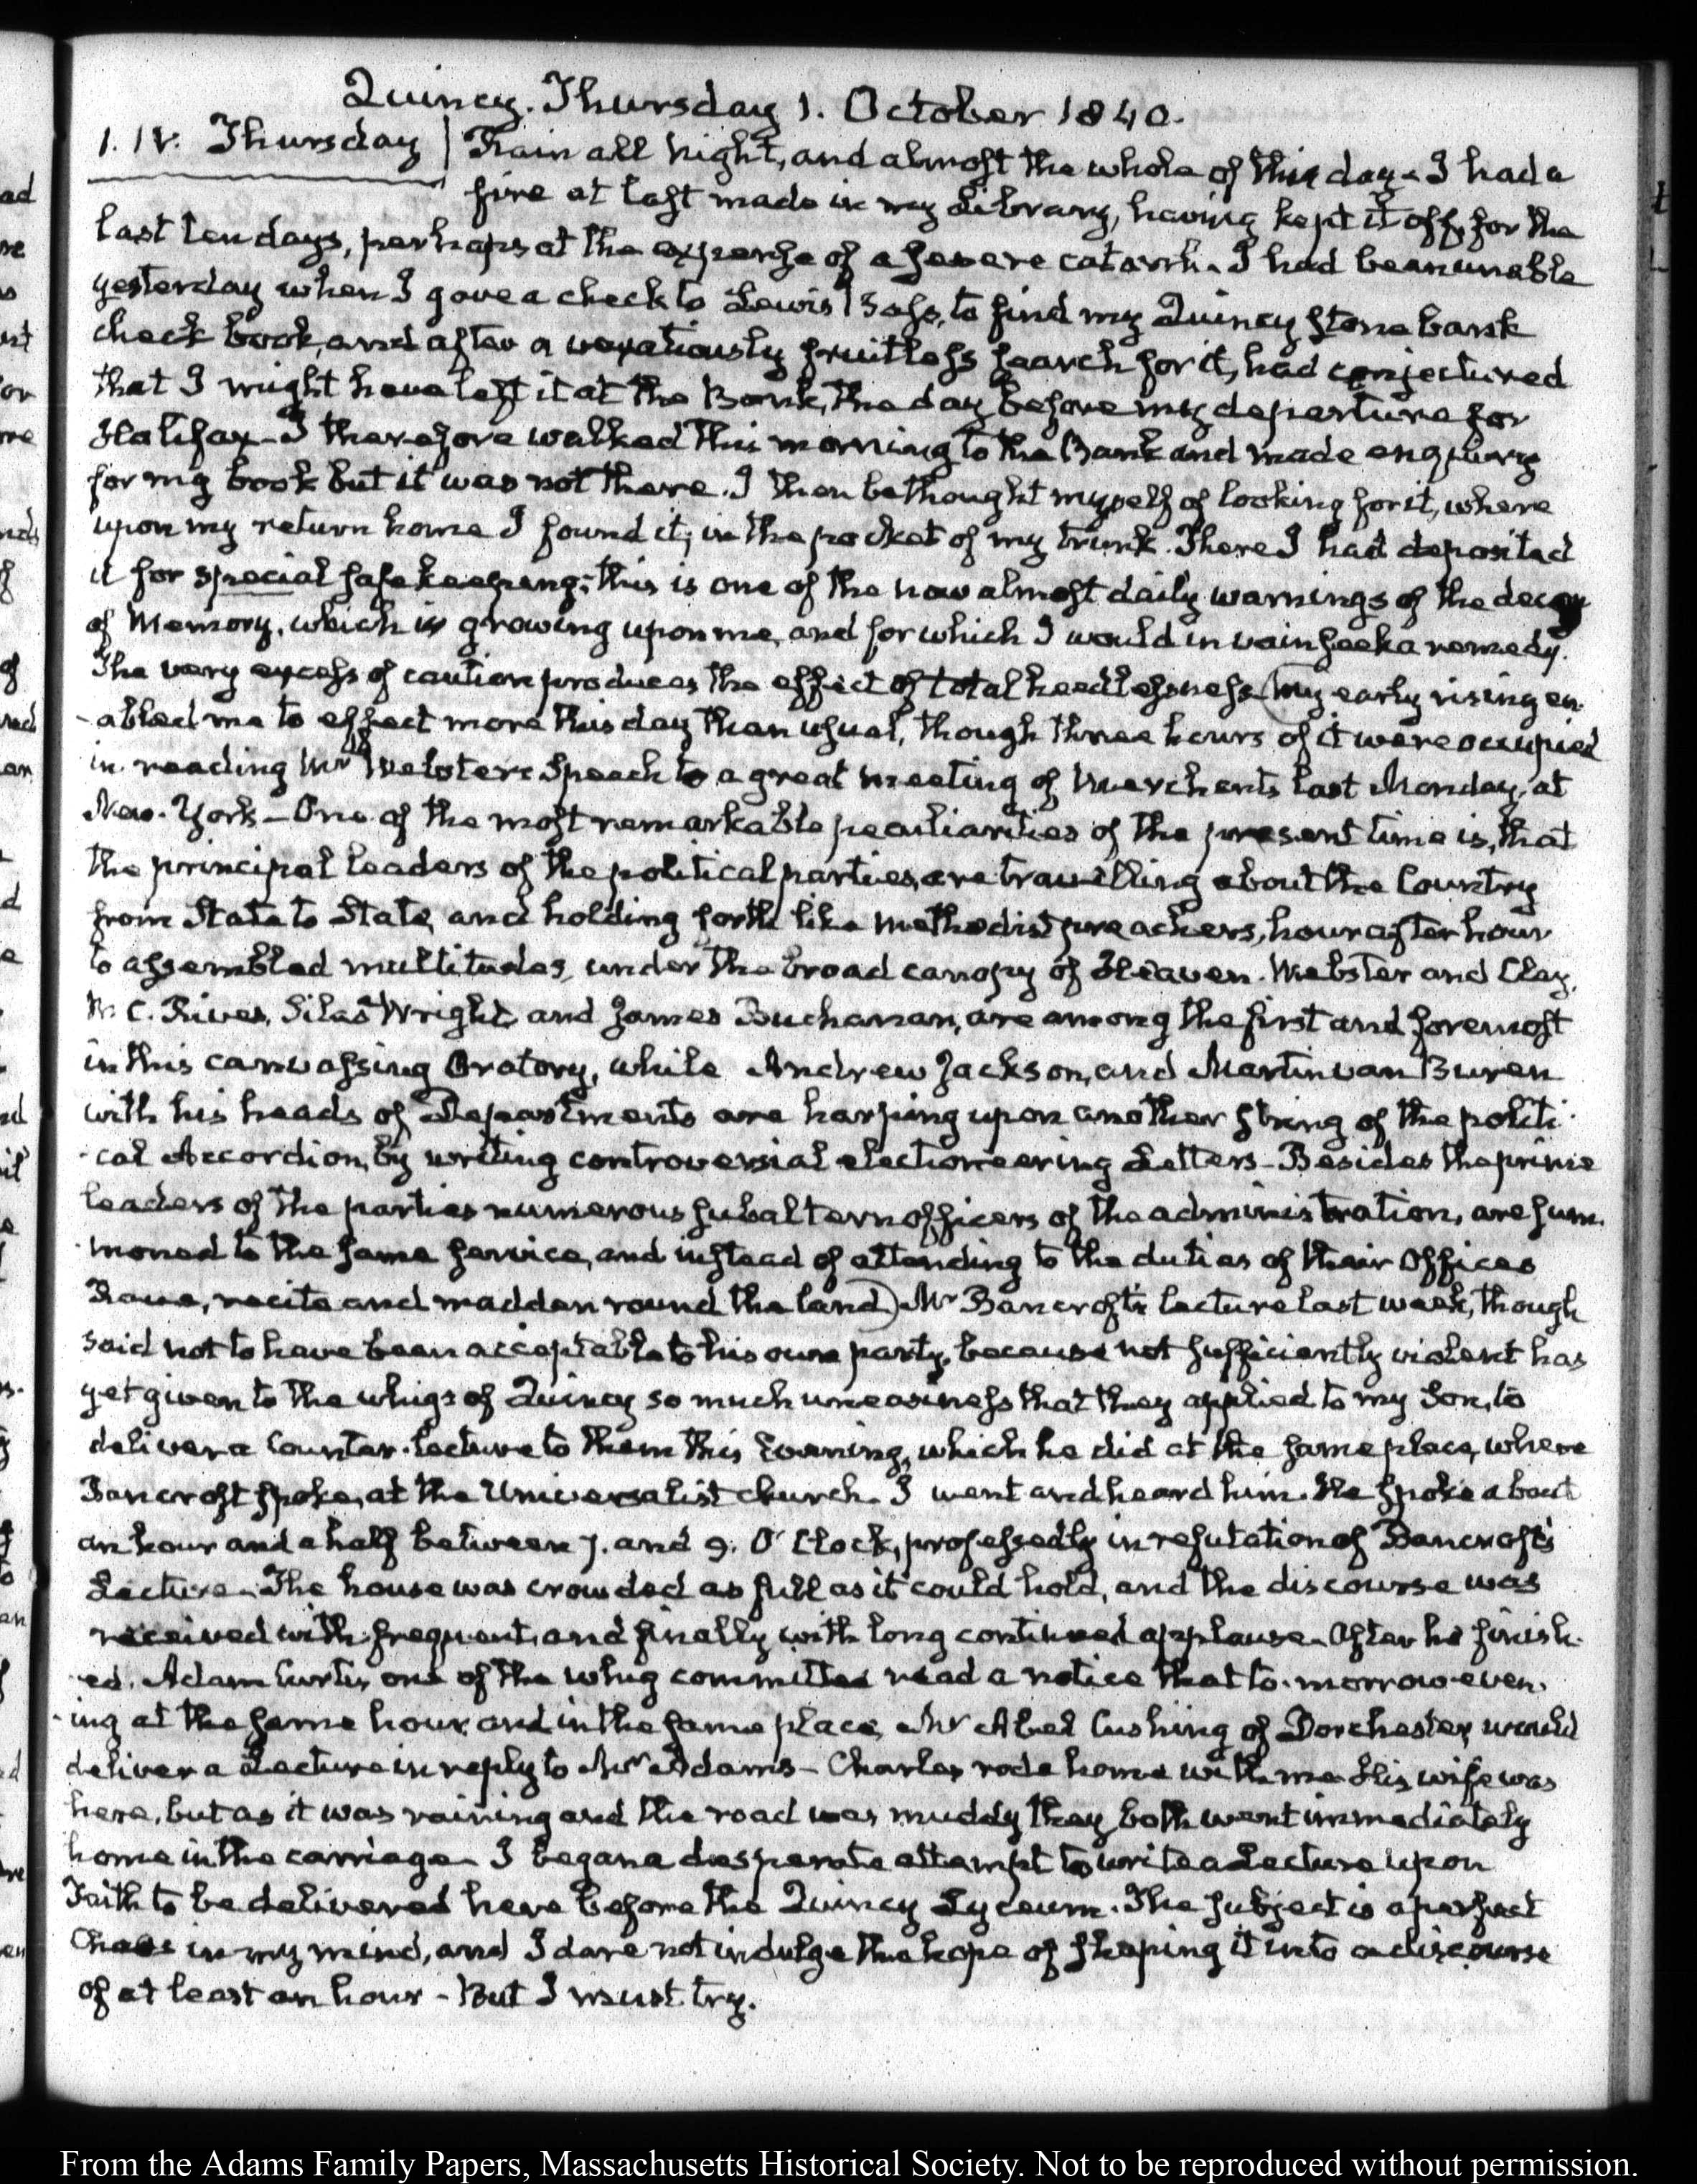 Quincy. Thursday 1. October 1840.
1. IV. Thursday
Rain all night, and almost the whole of this day. I had a
fire at last made in my Library, having kept it off, for the
last ten days, perhaps at the expense of a severe catarrh. I had been unable
yesterday when I gave a check to Lewis Bass, to find my Quincy Stone bank
check book, and after a vexatiously fruitless search for it, had conjectured
that I might have left it at the Bank, the day before my departure for
Halifax. I therefore walked this morning to the Bank and made enquiry
for my book but it was not there. I then bethought myself of looking for it, where
upon my return home I found it; in the pocket of my trunk. There I had deposited
it for special safe keeping; this is one of the now almost daily warnings of the decay
of Memory, which is growing upon me, and for which I would in vain seek a remedy.
The very excess of caution produces the effect of total heedlessness (My early rising en-
-abled me to effect more this day than usual, though three hours of it were occupied
in reading Mr Webster's Speech to a great meeting of Merchants last Monday, at
New-York - One of the most remarkable peculiarities of the present time is, that
the principal leaders of the political parties, are travelling about the Country
from State to State, and holding forth like methodist preachers, hour after hour
to assembled multitudes, under the broad canopy of Heaven. Webster and Clay,
W. C. Rives, Silas Wright and James Buchanan, are among the first and foremost
in this canvassing Oratory, while Andrew Jackson, and Martin van Buren
with his heads of Departments are harping upon another string of the politi-
-cal Accordion, by writing controversial electioneering Letters - Besides the prime
leaders of the parties numerous subaltern officers of the administration, are sum-
-moned to the same service, and instead of attending to the duties of their Offices
Rave, recite and madden round the land) Mr Bancroft's lecture last week, though
said not to have been acceptable to his own party, because not sufficiently violent has
yet given to the whigs of Quincy so much uneasiness that they applied to my Son, to
deliver a Counter-lecture to them this Evening, which he did at the same place, where
Bancroft spoke, at the Universalist church. I went and heard him. He spoke about
an hour and a half between 7. and 9. O'Clock, professedly in refutation of Bancroft's
Lecture. The house was crowded as full as it could hold, and the discourse was
received with frequent, and finally with long continued applause. After he finish-
-ed, Adam Curtis, one of the whig committee read a notice that to-morrow even-
-ing at the same hour and in the same place, Mr Abel Cushing of Dorchester, would
deliver a Lecture in reply to Mr Adams - Charles rode home with me. His wife was
here, but as it was raining and the road was muddy they both went immediately
home in the carriage. I began a desperate attempt to write a Lecture upon
Faith to be delivered here before the Quincy Lyceum. The subject is a perfect
Chaos in my mind, and I dare not indulge the hope of shaping it into a discourse
of at least an hour - But I must try.
From the Adams Family Papers, Massachusetts Historical Society. Not to be reproduced without permission.